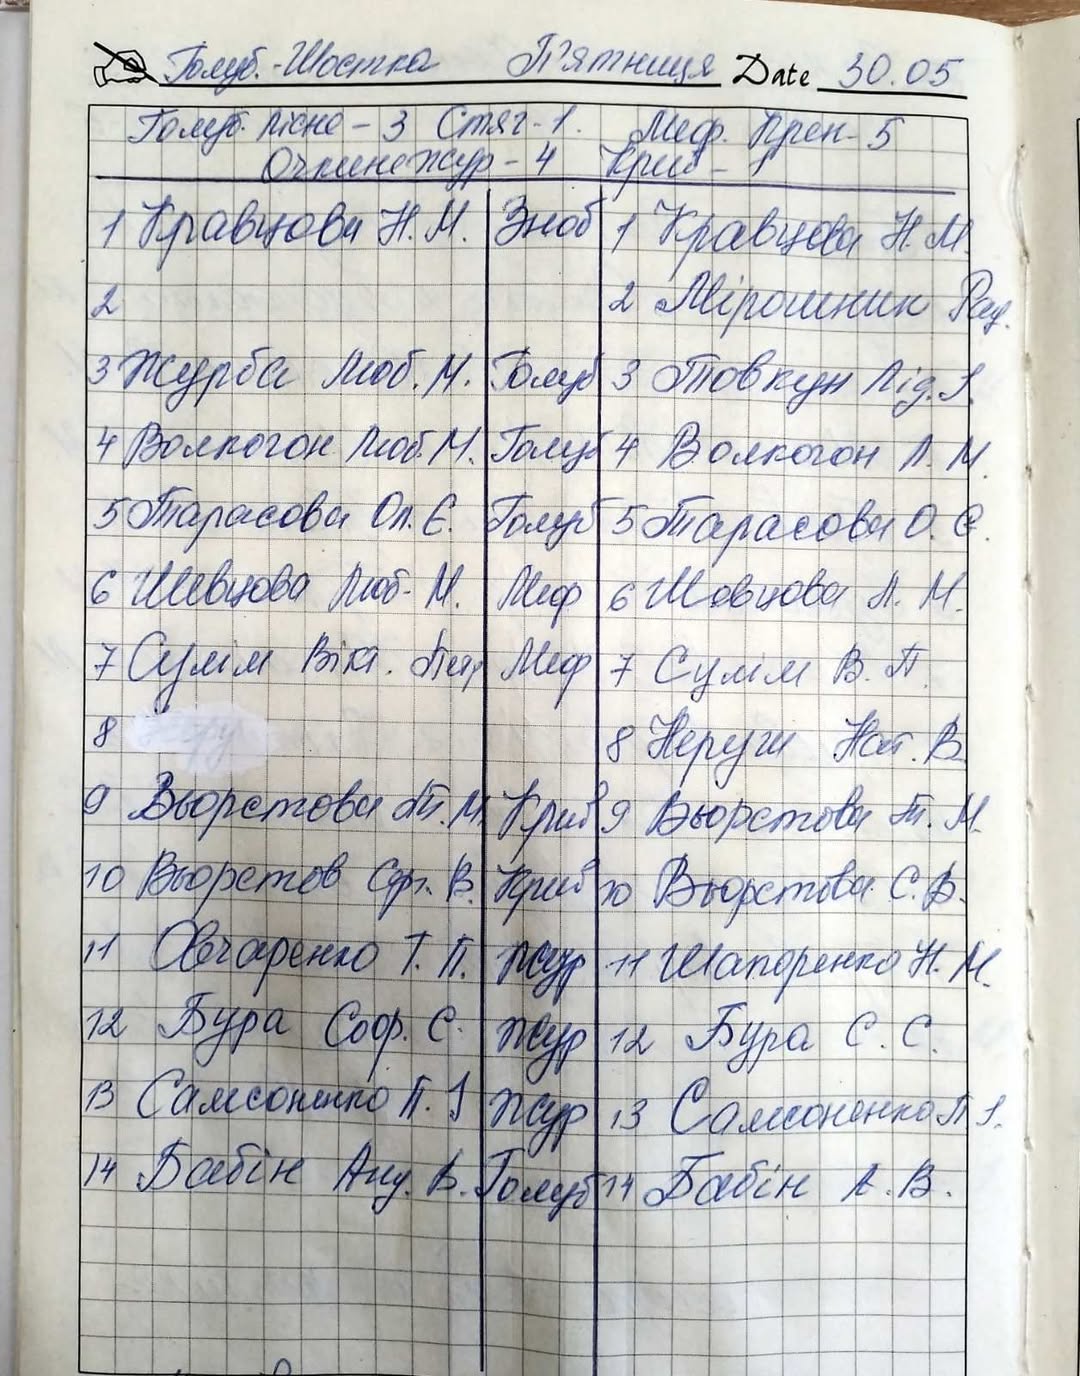 Голуб.-Шостка П'ятниця Date 30.05
Голуб. Лісне - 3 Стяг-1. Меф. Прен-5
Очкине Жур - 4 Крив - 1
1 Кравцова Н.М. Зноб 1 Кравцова Н.М.
2 2 Мірошник Рад.
3 Журба Люб.М. Голуб 3 Товкун Лід.І.
4 Волкогон Люб.М. Голуб 4 Волкогон Л.М.
5 Тарасова Ол.Є. Голуб 5 Тарасова О.Є.
6 Шевцова Люб.М. Меф 6 Шевцова Л.М.
7 Сулім Вікт. Пет Меф 7 Сулім В.П.
8 8 Неруш Нат.В
9 Вьюрстова Т.М. Крив 9 Вьюрстова Т.М.
10 Вьюрстов Сер.В. Крив 10 Вьюрстова С.В.
11 Овчаренко Т.П. Жур 11 Шапоренко Н.М.
12 Бура Соф.С. Жур 12 Бура С.С.
13 Самсоненко П.І Жур 13 Самсоненко П.І.
14 Бабін Анд.В. Голуб 14 Бабін А.В.